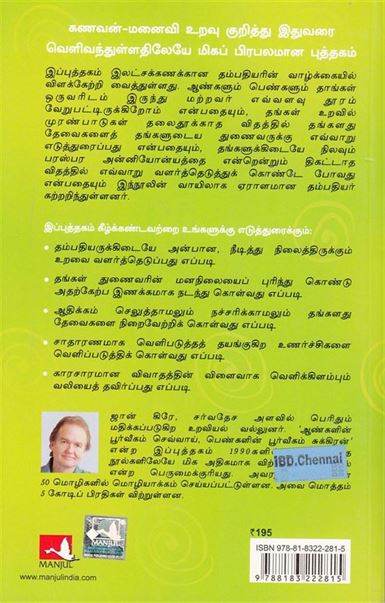 கணவன்-மனைவி உறவு குறித்து இதுவரை
வெளிவந்துள்ளதிலேயே மிகப் பிரபலமான புத்தகம்
இப்புத்தகம் இலட்சக்கணக்கான தம்பதியரின் வாழ்க்கையில்
விளக்கேற்றி வைத்துள்ளது. ஆண்களும் பெண்களும் தாங்கள்
ஒருவரிடம் இருந்து மற்றவர் எவ்வளவு தூரம்
வேறுபட்டிருக்கிறோம் என்பதையும், தங்கள் உறவில்
முரண்பாடுகள் தலைதூக்காத விதத்தில் தங்களது
தேவைகளைத் தங்களுடைய துணைவருக்கு எவ்வாறு
எடுத்துரைப்பது என்பதையும், தங்களுக்கிடையே நிலவும்
பரஸ்பர அன்னியோன்யத்தை என்றென்றும் திகட்டாத
விதத்தில் எவ்வாறு வளர்த்தெடுத்துக் கொண்டே போவது
என்பதையும் இந்நூலின் வாயிலாக ஏராளமான தம்பதியர்
கற்றறிந்துள்ளனர்.
இப்புத்தகம் கீழ்க்கண்டவற்றை உங்களுக்கு எடுத்துரைக்கும்:
• தம்பதியருக்கிடையே அன்பான, நீடித்து நிலைத்திருக்கும்
உறவை வளர்த்தெடுப்பது எப்படி
• தங்கள் துணைவரின் மனநிலையைப் புரிந்து கொண்டு
அதற்கேற்ப இணக்கமாக நடந்து கொள்வது எப்படி
• ஆதிக்கம் செலுத்தாமலும் நச்சரிக்காமலும் தங்களது
தேவைகளை நிறைவேற்றிக் கொள்வது எப்படி
• சாதாரணமாக வெளிப்படுத்தத் தயங்கிற உணர்ச்சிகளை
வெளிப்படுத்திக் கொள்வது எப்படி
• காரசாரமான விவாதத்தின் விளைவாக வெளிக்கிளம்பும்
வலியைத் தவிர்ப்பது எப்படி
ஜான் கிரே, சர்வதேச அளவில் பெரிதும்
மதிக்கப்படுகிற உறவியல் வல்லுனர். 'ஆண்களின்
பூர்வீகம் செவ்வாய், பெண்களின் பூர்வீகம் சுக்கிரன்'
என்ற இப்புத்தகம் 1990களி
நூல்களிலேயே மிக அதிகமாக விற்
என்ற பெருமைக்குரியது. அவர
50 மொழிகளில் மொழியாக்கம் செய்யப்பட்டுள்ளன. அவை மொத்தம்
5 கோடிப் பிரதிகள் விற்றுள்ளன.
IBD.Chennai
₹195
MANJUL
www.manjulindia.com
ISBN 978-81-8322-281-5
9 788183 222815